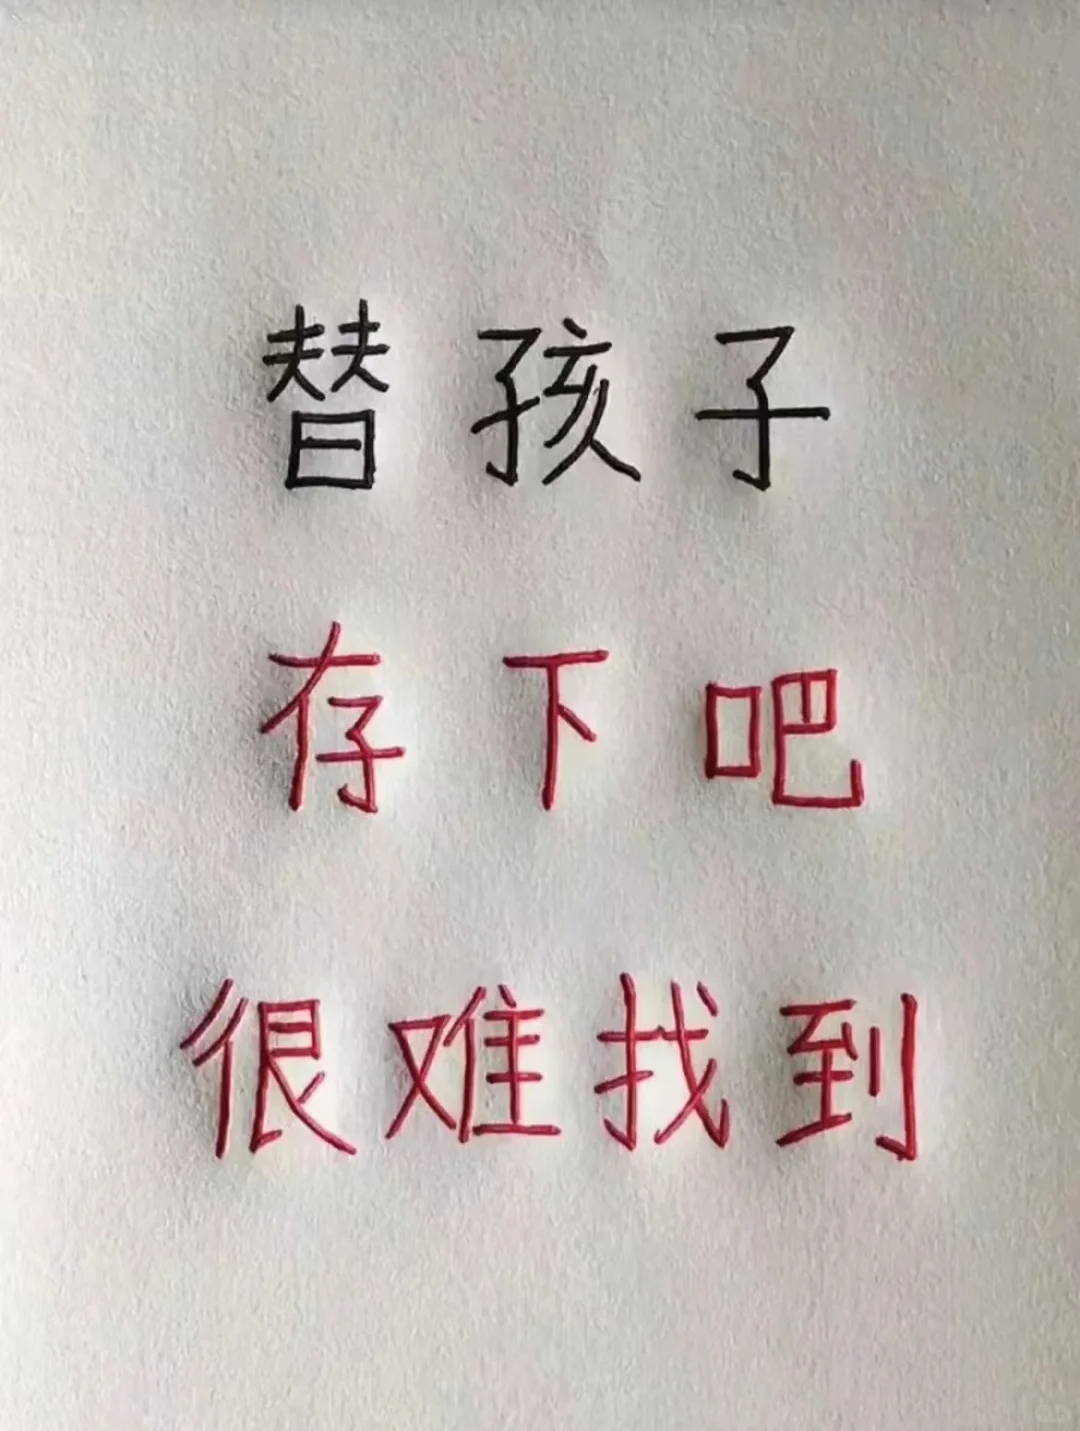 替孩子
存下吧
很难找到